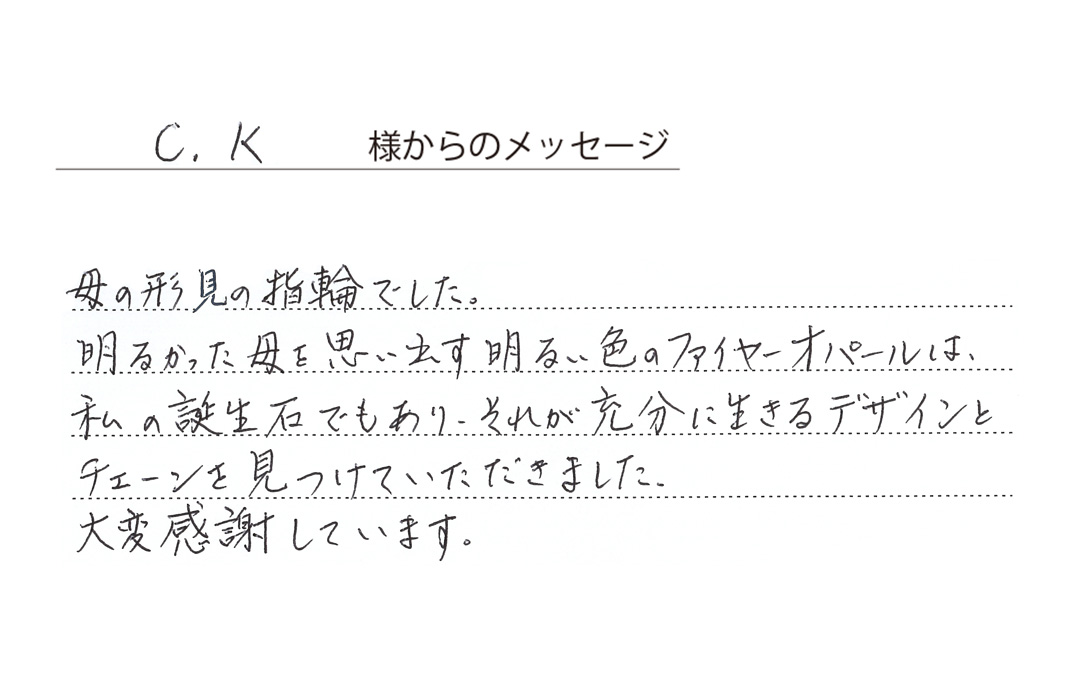 C. K 様からのメッセージ
母の形見の指輪でした。
明るかった母を思い出す明るい色のファイヤーオパールは、
私の誕生石でもあり、それが充分に生きるデザインと
チェーンを見つけていただきました。
大変感謝しています。